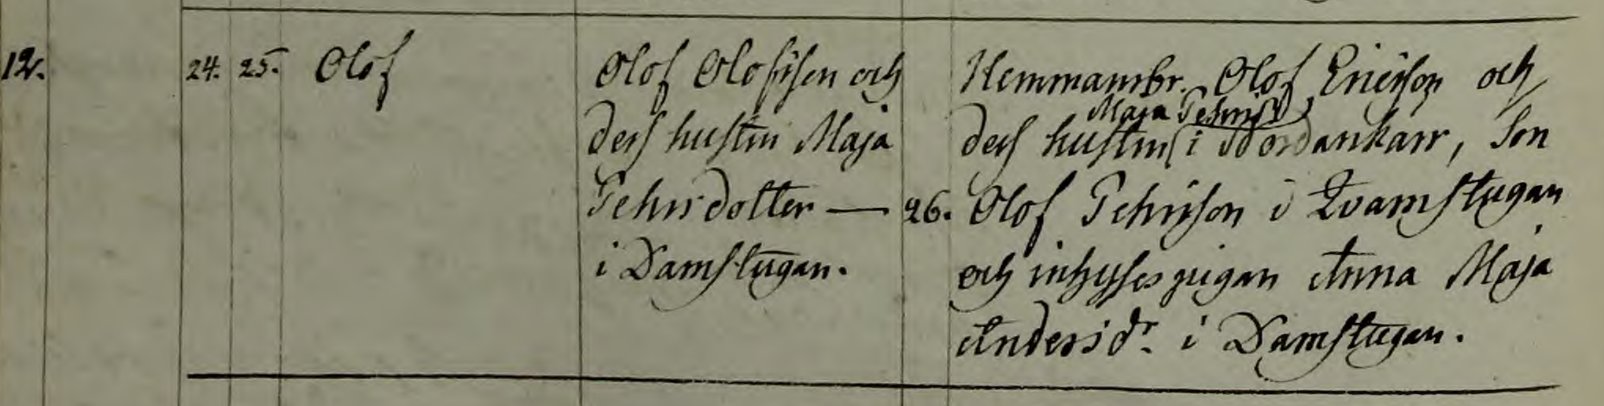 12. 24. 25. Olof
Olof Olofsson och
dess hustru Maja
Pehrsdotter — 26.
i Damstugan.
Hemmansbr. Olof Ericsson och
Maja Pehrsdr
dess hustru i Nordankarr, Son
Olof Pehrsson i Qvarnstugan
och inhysespigan Anna Maja
Andersdr. i Damstugan.